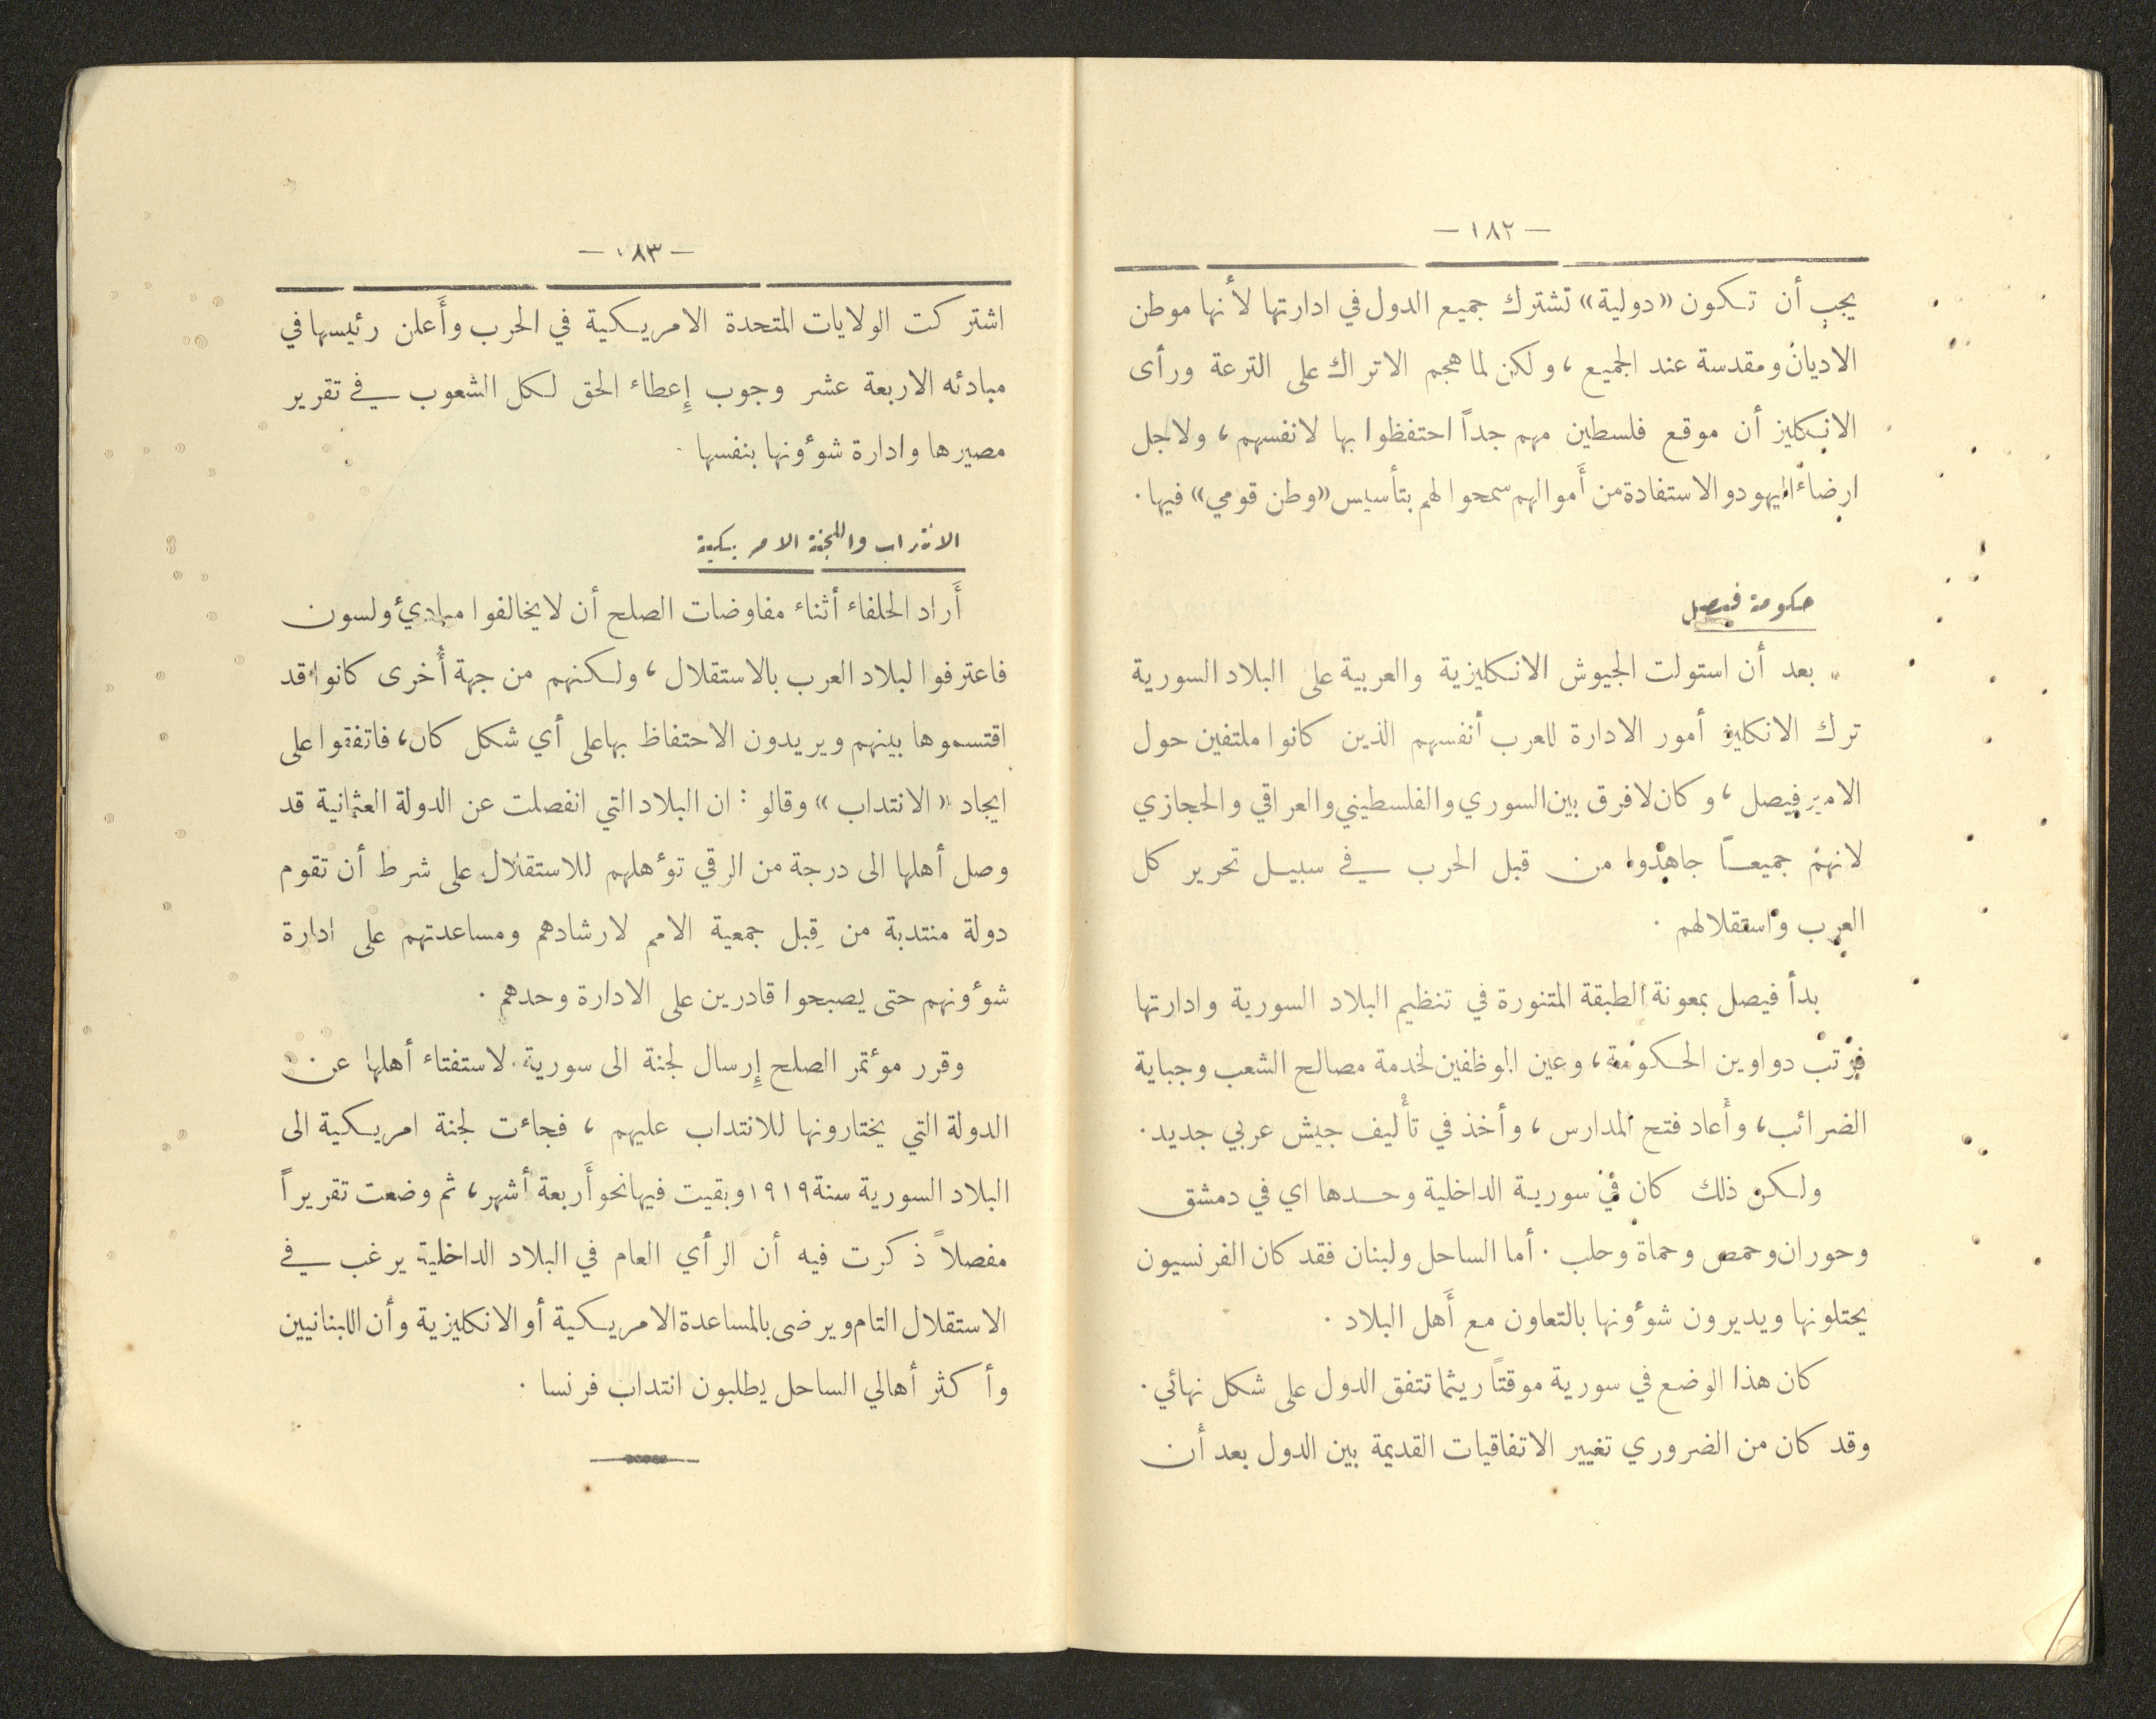 — ١٨٢ —
يجب أن تكون «دولية» تشترك جميع الدول في ادارتها لأنها موطن
الاديان ومقدسة عند الجميع، ولكن لما هجم الاتراك على الترعة ورأى
الانكليز أن موقع فلسطين مهم جداً احتفظوا بها لانفسهم، ولاجل
ارضاء اليهود والاستفادة من أَموالهم سمحوا لهم بتأسيس «وطن قومي» فيها.
حكومة فيصل
بعد أن استولت الجيوش الانكليزية والعربية على البلاد السورية
ترك الانكليز أمور الادارة للعرب أنفسهم الذين كانوا ملتفين حول
الامير فيصل، وكان لا فرق بين السوري والفلسطيني والعراقي والحجازي
لانهم جميعاً جاهدوا من قبل الحرب في سبيل تحرير كل
العرب واستقلالهم.
بدأ فيصل بمعونة الطبقة المتنورة في تنظيم البلاد السورية وادارتها
فرتب دواوين الحكومة، وعين الموظفين لخدمة مصالح الشعب وجباية
الضرائب، وأَعاد فتح المدارس، وأخذ في تأليف جيش عربي جديد.
ولكن ذلك كان في سورية الداخلية وحدها اي في دمشق
وحوران وحمص وحماة وحلب. أما الساحل ولبنان فقد كان الفرنسيون
يحتلونها ويديرون شؤونها بالتعاون مع أَهل البلاد.
كان هذا الوضع في سورية موقتاً ريثما تتفق الدول على شكل نهائي.
وقد كان من الضروري تغيير الاتفاقيات القديمة بين الدول بعد أن
— ١٨٣ —
اشتركت الولايات المتحدة الامريكية في الحرب وأَعلن رئيسها في
مبادئه الاربعة عشر وجوب إِعطاء الحق لكل الشعوب في تقرير
مصيرها وادارة شؤونها بنفسها.
الانتداب واللجنة الامريكية
أَراد الحلفاء أثناء مفاوضات الصلح أن لا يخالفوا مبادئ ولسون
فاعترفوا لبلاد العرب بالاستقلال، ولكنهم من جهة أُخرى كانوا قد
اقتسموها بينهم ويريدون الاحتفاظ بها على أي شكل كان، فاتفقوا على
ايجاد «الانتداب» وقالو: ان البلاد التي انفصلت عن الدولة العثمانية قد
وصل أهلها الى درجة من الرقي تؤهلهم للاستقلال على شرط أن تقوم
دولة منتدبة من قِبل جمعية الامم لارشادهم ومساعدتهم على ادارة
شؤونهم حتى يصبحوا قادرين على الادارة وحدهم.
وقرر مؤتمر الصلح إِرسال لجنة الى سورية لاستفتاء أهلها عن
الدولة التي يختارونها للانتداب عليهم، فجاءت لجنة امريكية الى
البلاد السورية سنة ١٩١٩ وبقيت فيها نحو أَربعة أشهر، ثم وضعت تقريراً
مفصلاً ذكرت فيه أن الرأي العام في البلاد الداخلية يرغب في
الاستقلال التام ويرضى بالمساعدة الامريكية أو الانكليزية وأن اللبنانيين
وأكثر أهالي الساحل يطلبون انتداب فرنسا.